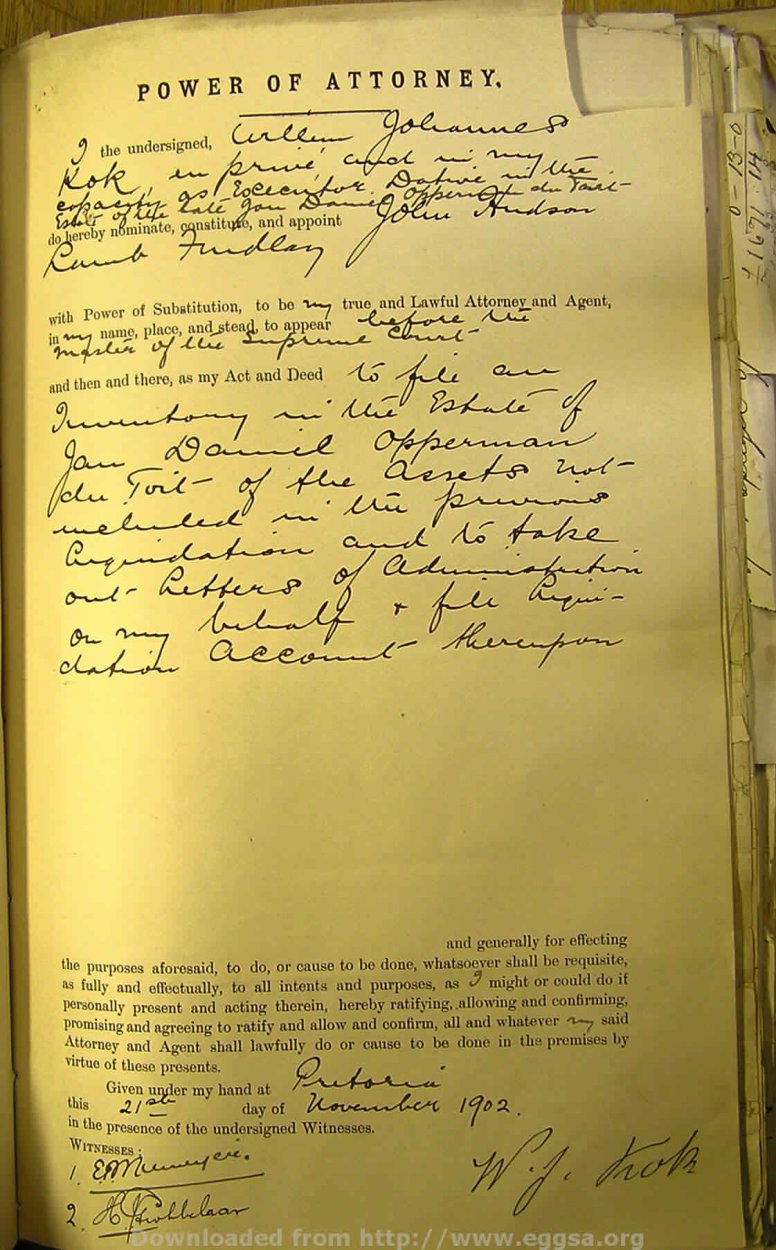 POWER OF ATTORNEY.
I the undersigned, Willem Johannes
Kok, in privé and in my
capacity as Executor Dative in the
Estate of the late Jan Daniel Opperman du Toit
do hereby nominate, constitute, and appoint John Hudson
Lamb Findlay
with Power of Substitution, to be my true and Lawful Attorney and Agent,
in my name, place, and stead, to appear before the
Master of the Supreme Court
and then and there, as my Act and Deed to file an
Inventory in the Estate of
Jan Daniel Opperman
du Toit of the assets not
included in the previous
liquidation and to take
out Letters of Administration
on my behalf & file liqui-
dation Account thereupon
and generally for effecting
the purposes aforesaid, to do, or cause to be done, whatsoever shall be requisite,
as fully and effectually, to all intents and purposes, as I might or could do if
personally present and acting therein, hereby ratifying, allowing and confirming,
promising and agreeing to ratify and allow and confirm, all and whatever my said
Attorney and Agent shall lawfully do or cause to be done in the premises by
virtue of these presents.
Given under my hand at Pretoria
this 21st day of November 1902.
in the presence of the undersigned Witnesses.
WITNESSES:
1.
2. H
W. J. Kok
0-13-0
Downloaded from http://www.eggsa.org